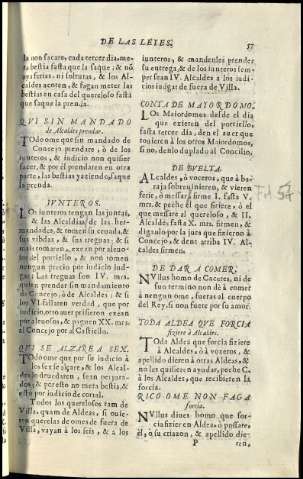 DE LAS LEIES. 57
la non sacare, cada tercer dia, me-
ta bestia fasta que la saque, & nō
aya ferias, ni solturas, & los Al-
caldes acoten, & fagan meter las
bestias en casa del quereloso fasta
que saque la prenda.
QVI SIN MANDADO
de Alcaldes prendar.
TOdo ome que sin mandado de
Concejo prendare, ò de los
iunteros, & indicio non quisier
sacer, & por él prendaren en otra
parte, las bestias yaziendo, saque
la prenda.
IVNTEROS.
LOs iunteros tengan las juntas,
& las Alcaldias de las her-
mandades, & tomen su
& las treguas; & si
mas tomaren, exean por alevo-
sos del portiello, & non tomen
nengun precio por indicio iudgar
Las treguas son IV. mrs.
quien prender sin mandamiento
de Concejo, ò de Alcaldes, & si
los VI. estaren verdad, que por
indicio, otro aver prisieren exean
por alevosos, & pognen XX. mrs.
al Concejo por al Castiello.
QVI SE ALZAREA SEX.
TOdo ome que por su indicio à
los sex se algare, & los Alcal-
des lo dexaren, sean perjura-
dos, & per esto no meta bestia, &
esto por indicio de corral.
Todos los querelosos tam de
Villa, quam de Aldeas, si ouie-
querelas de omes de fuera de
Villa, vayan à los seis, & a los
iunteros, & mandenles prender
su entrega, & de los iunteros sem-
per sean IV. Alcaldes a los iudi-
cios iudgar de fuera de Villa.
CONTA DE MAIORDOMO.
LOs Maiordomos desde el dia
que exieren del portiello,
fasta tercer dia, den el auer que
touieren à los otros Maiordomos,
si no, denlo duplado al Concilio.
DE BVELTA.
ALcaldes, ò vozeros, que à ba-
raja sobreuinieren, & vieren
ferir, ò mesar, firme I. fasta V.
mrs, & peche él que firiere, ò él
que mesare al quereloso, & II.
Alcalde, fasta X. mrs. firmen, &
digan lo por la jura que fizieron à
Concejo, & dent arriba IV. Al-
caldes firmen.
DE DAR A COMER.
NVllus homo de Caceres, ni de
suo termino non dè à comer
à nengun ome, fueras al cuerpo
del Rey, si non fuere por su amor.
TODA ALDEA QVE FORCIA
fiziere à Alcaldes.
TOda Aldea que forcia fiziere
à Alcaldes, ò à vozeros, &
apellido dieren à otras Aldeas, &
no les quisieren ayudar, peche C.
à los Alcaldes, que recibieren la
forcia.
RICO OME NON FAGA
forcia.
NVllus diues homo que for-
cia fizier en Aldea, ò possare
él, ò su cazaton, & apellido die-
P
ren,
Fol 57